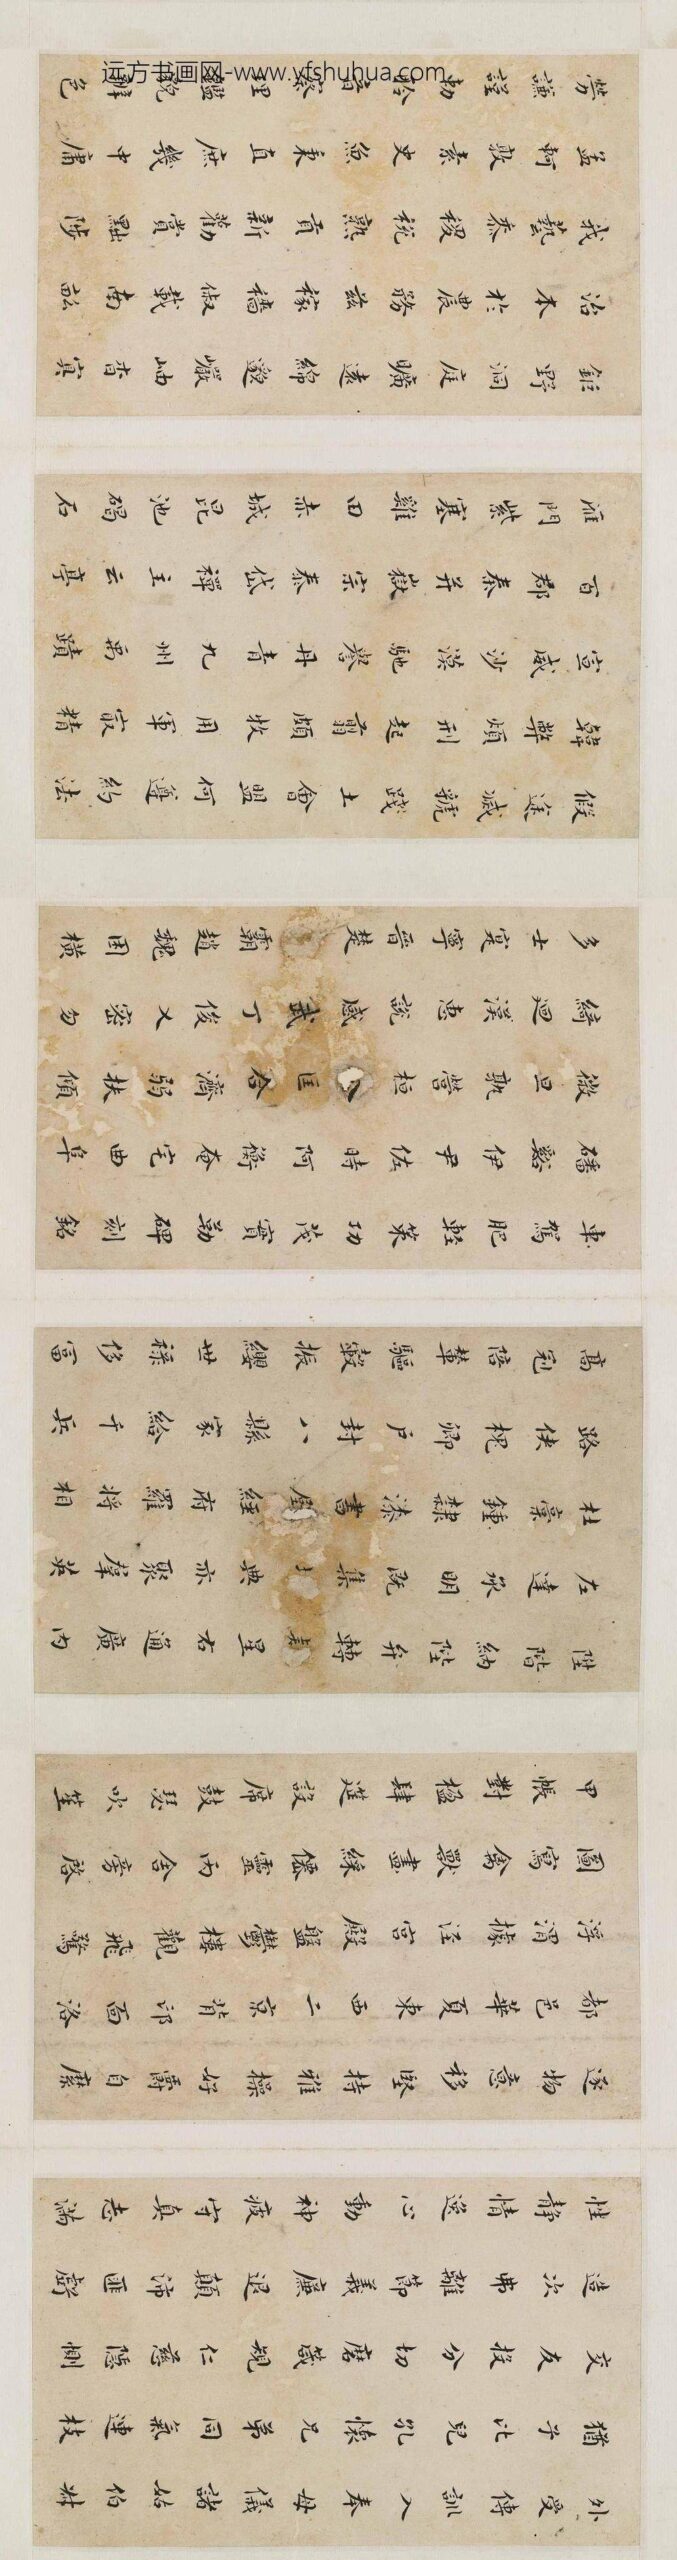 远方书画网-www.yfshuhua.com
外受傳訓入奉母儀諸姑伯叔
猶子比兒孔懷兄弟同氣連枝
交友投分切磨箴規仁慈隱惻
造次弗離節義廉退顛沛匪虧
性靜情逸心動神疲守真志滿
逐物意移堅持雅操好爵自縻
都邑華夏東西二京背邙面洛
浮渭據涇宮殿盤鬱樓觀飛驚
圖寫禽獸畫綵僊靈丙舍旁啓
甲帳對楹肆筵設席鼓瑟吹笙
陞階納陛弁轉星右通廣內
左達承明既集典亦聚羣英
杜稾鍾隸漆書壁經府羅將相
路俠槐卿戶封八縣家給千兵
高冠陪輦驅轂振纓世祿侈富
車駕肥輕策功茂實勒碑刻銘
磻谿伊尹佐時阿衡奄宅曲阜
微旦孰營桓匡合濟弱扶傾
綺迴漢惠說感武丁俊乂密勿
多士寔寧晉楚霸趙魏困橫
假途滅虢踐土會盟何遵約法
韓弊煩刑起翦頗牧用軍最精
宣威沙漠馳譽丹青九州禹蹟
百郡秦并嶽宗泰岱禪主云亭
雁門紫塞雞田赤城昆池碣石
鉅野洞庭曠遠綿邈巖岫杳冥
治本於農務茲稼穡俶載南畝
我藝黍稷稅熟貢新勸賞黜陟
孟軻敦素史魚秉直庶幾中庸
勞謙謹勅聆音察理鑑貌辨色